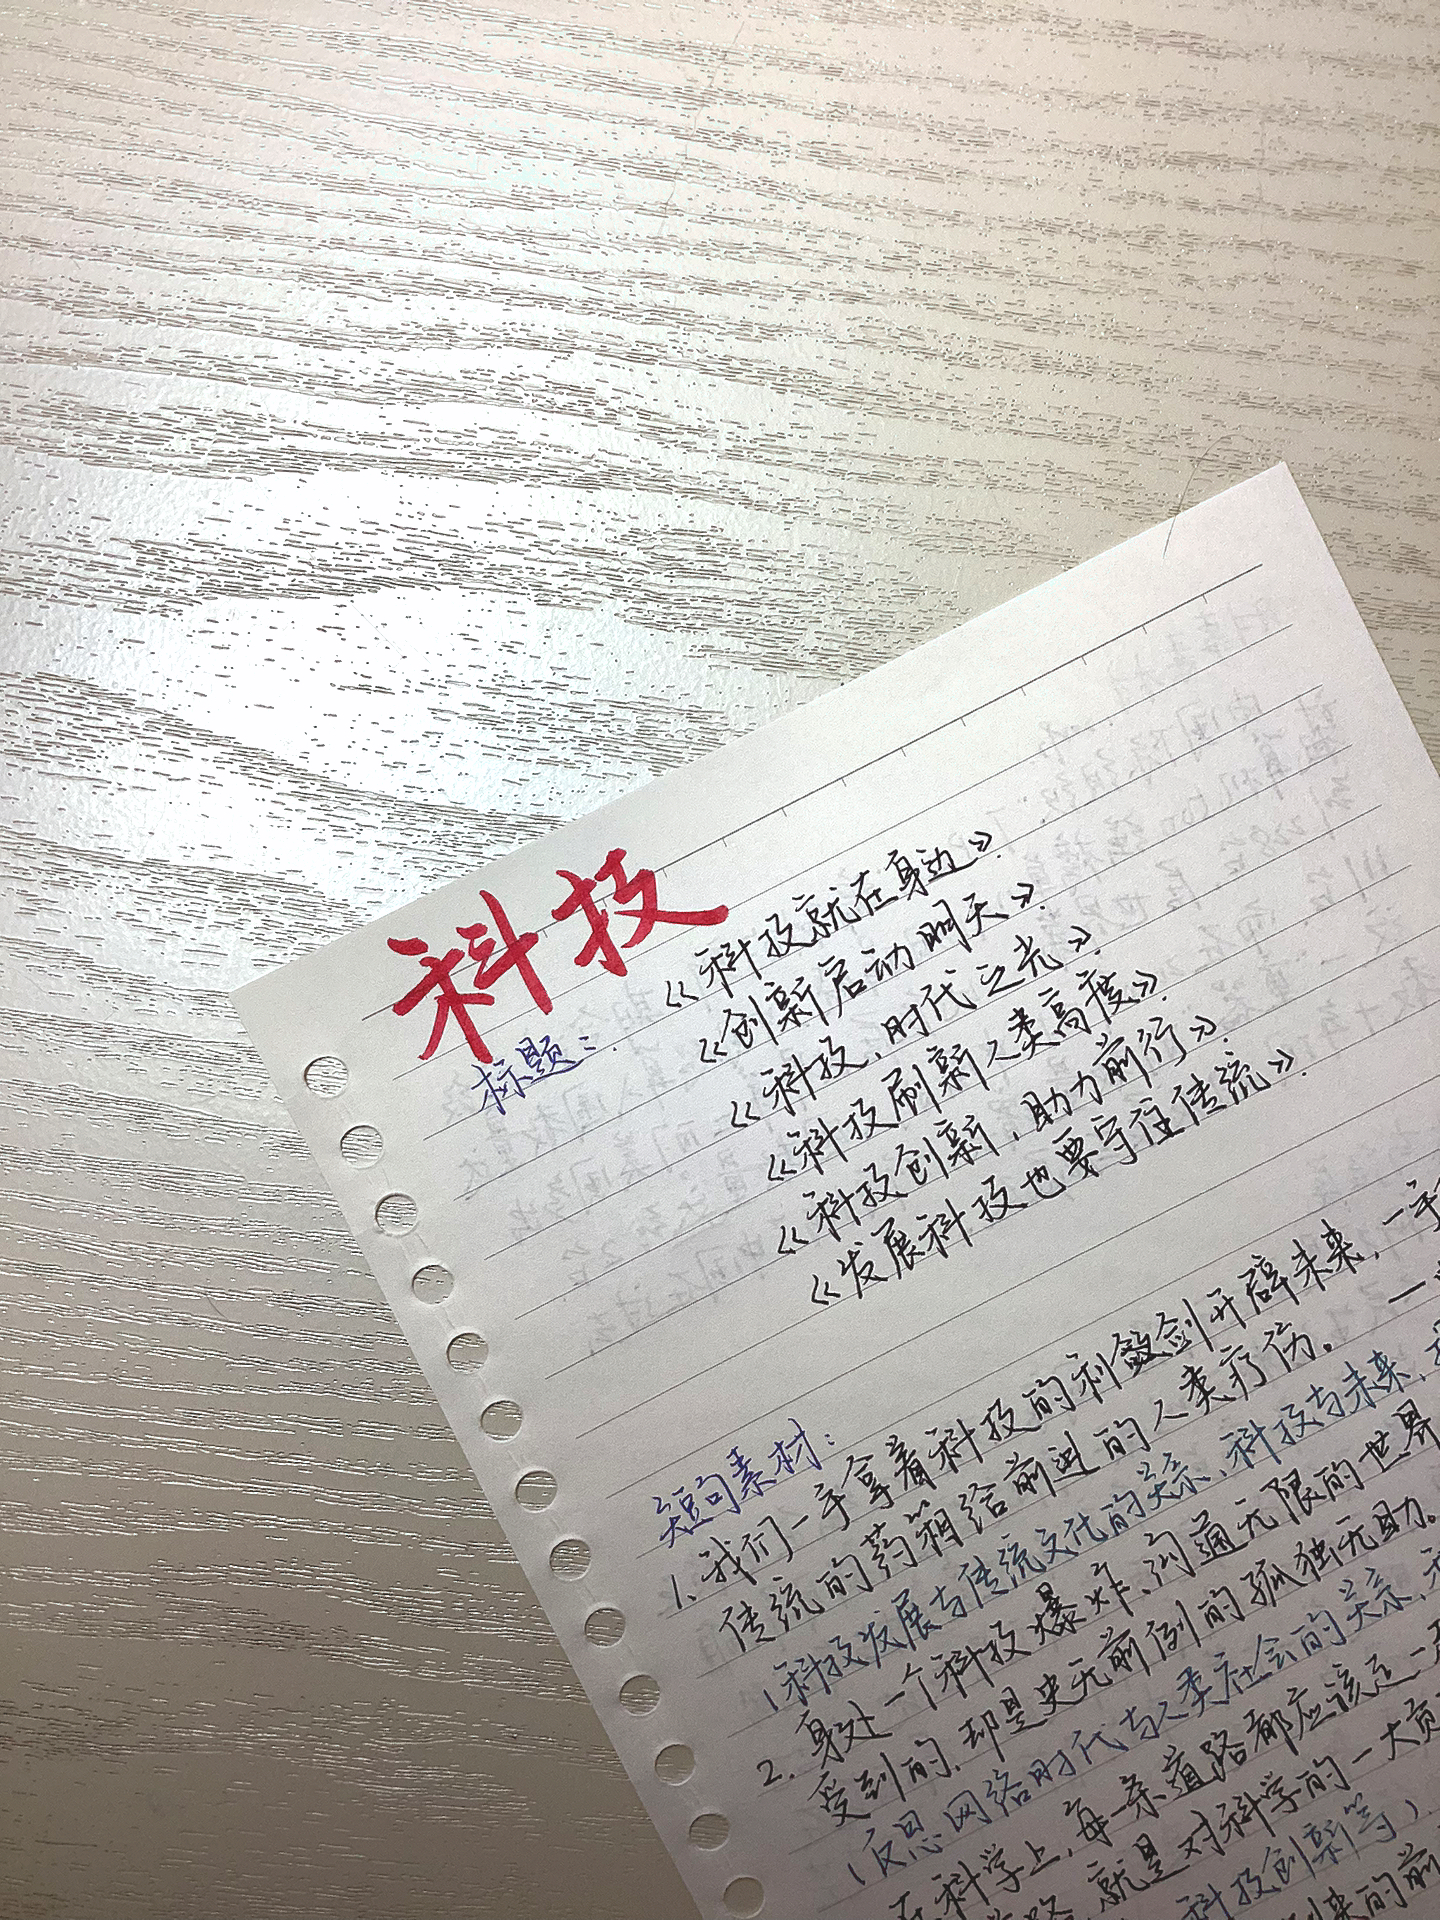 科技
标题:
《科技就在身边》.
《创新启动明天》.
《科技,时代之光》.
《科技刷新人类高度》.
《科技创新,助力前行》.
《发展科技也要守住传统》.
短句素材:
1. 我们一手拿着科技的利剑开辟未来,一手
传统的药箱给前进的人类疗伤。
(科技发展与传统文化的关系、科技与未来,
2. 身处一个科技爆炸、沟通无限的世界
受到的,却是史无前例的孤独无助。
(反思网络时代与人类社会的关系,
在科学上,每一条道路都应该走一
路,就是对科学的一大贡
科技创新等)
到来的前